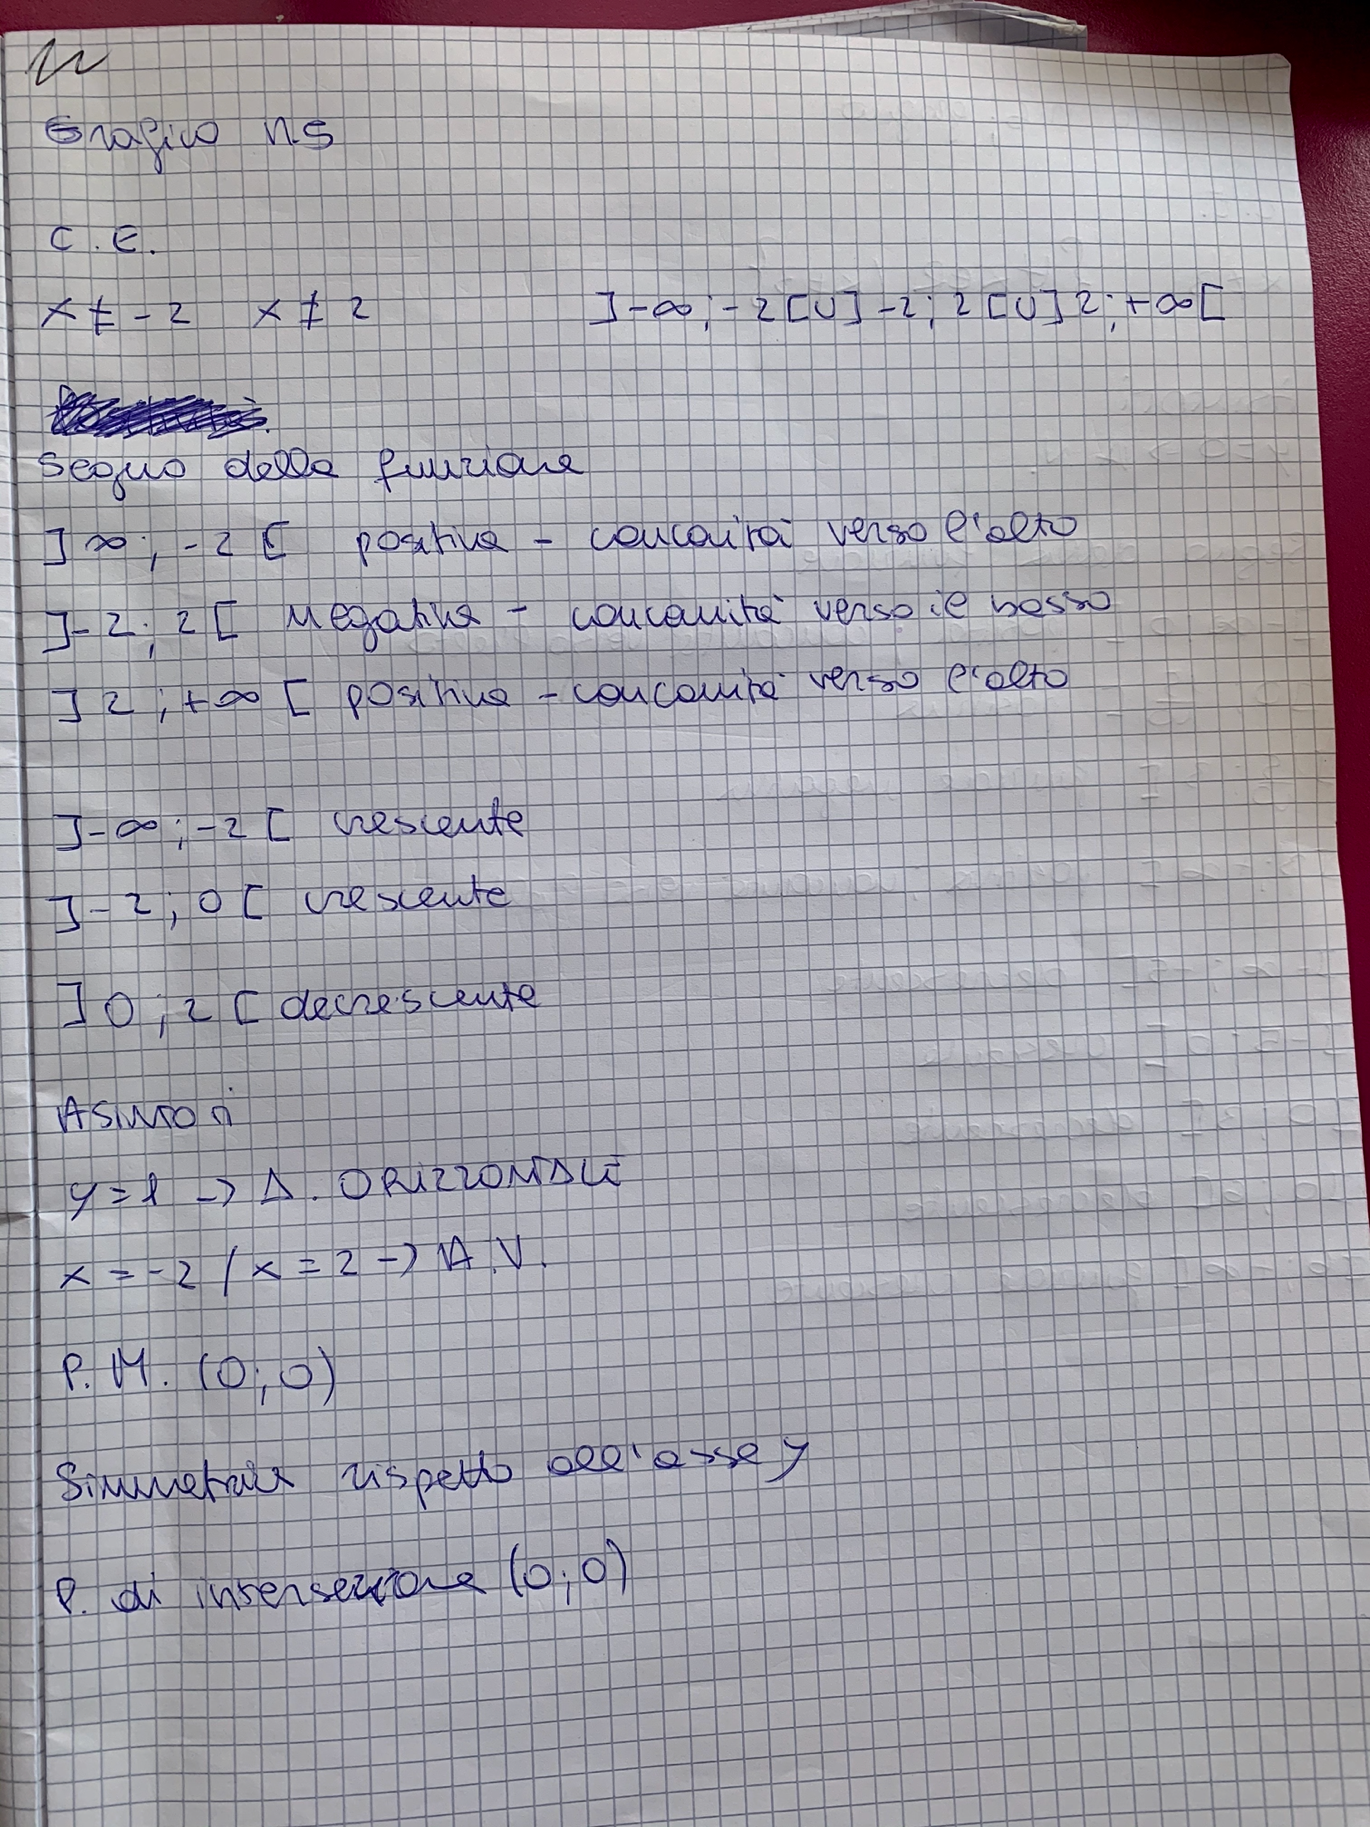 Grafico n5
C.E.
x ≠ -2 x ≠ 2 ]-∞; -2[U]-2; 2[U]2; +∞[
Segno della funzione
]∞; -2[ positiva - concavità verso l'alto
]-2; 2[ negativa - concavità verso il basso
]2; +∞[ positiva - concavità verso l'alto
]-∞; -2[ crescente
]-2; 0[ crescente
]0; 2[ decrescente
Asintoti
y=1 -> A. ORIZZONTALE
x=-2 / x=2 -> A.V.
P.M. (0;0)
Simmetria rispetto all'asse y
P. di intersezione (0;0)